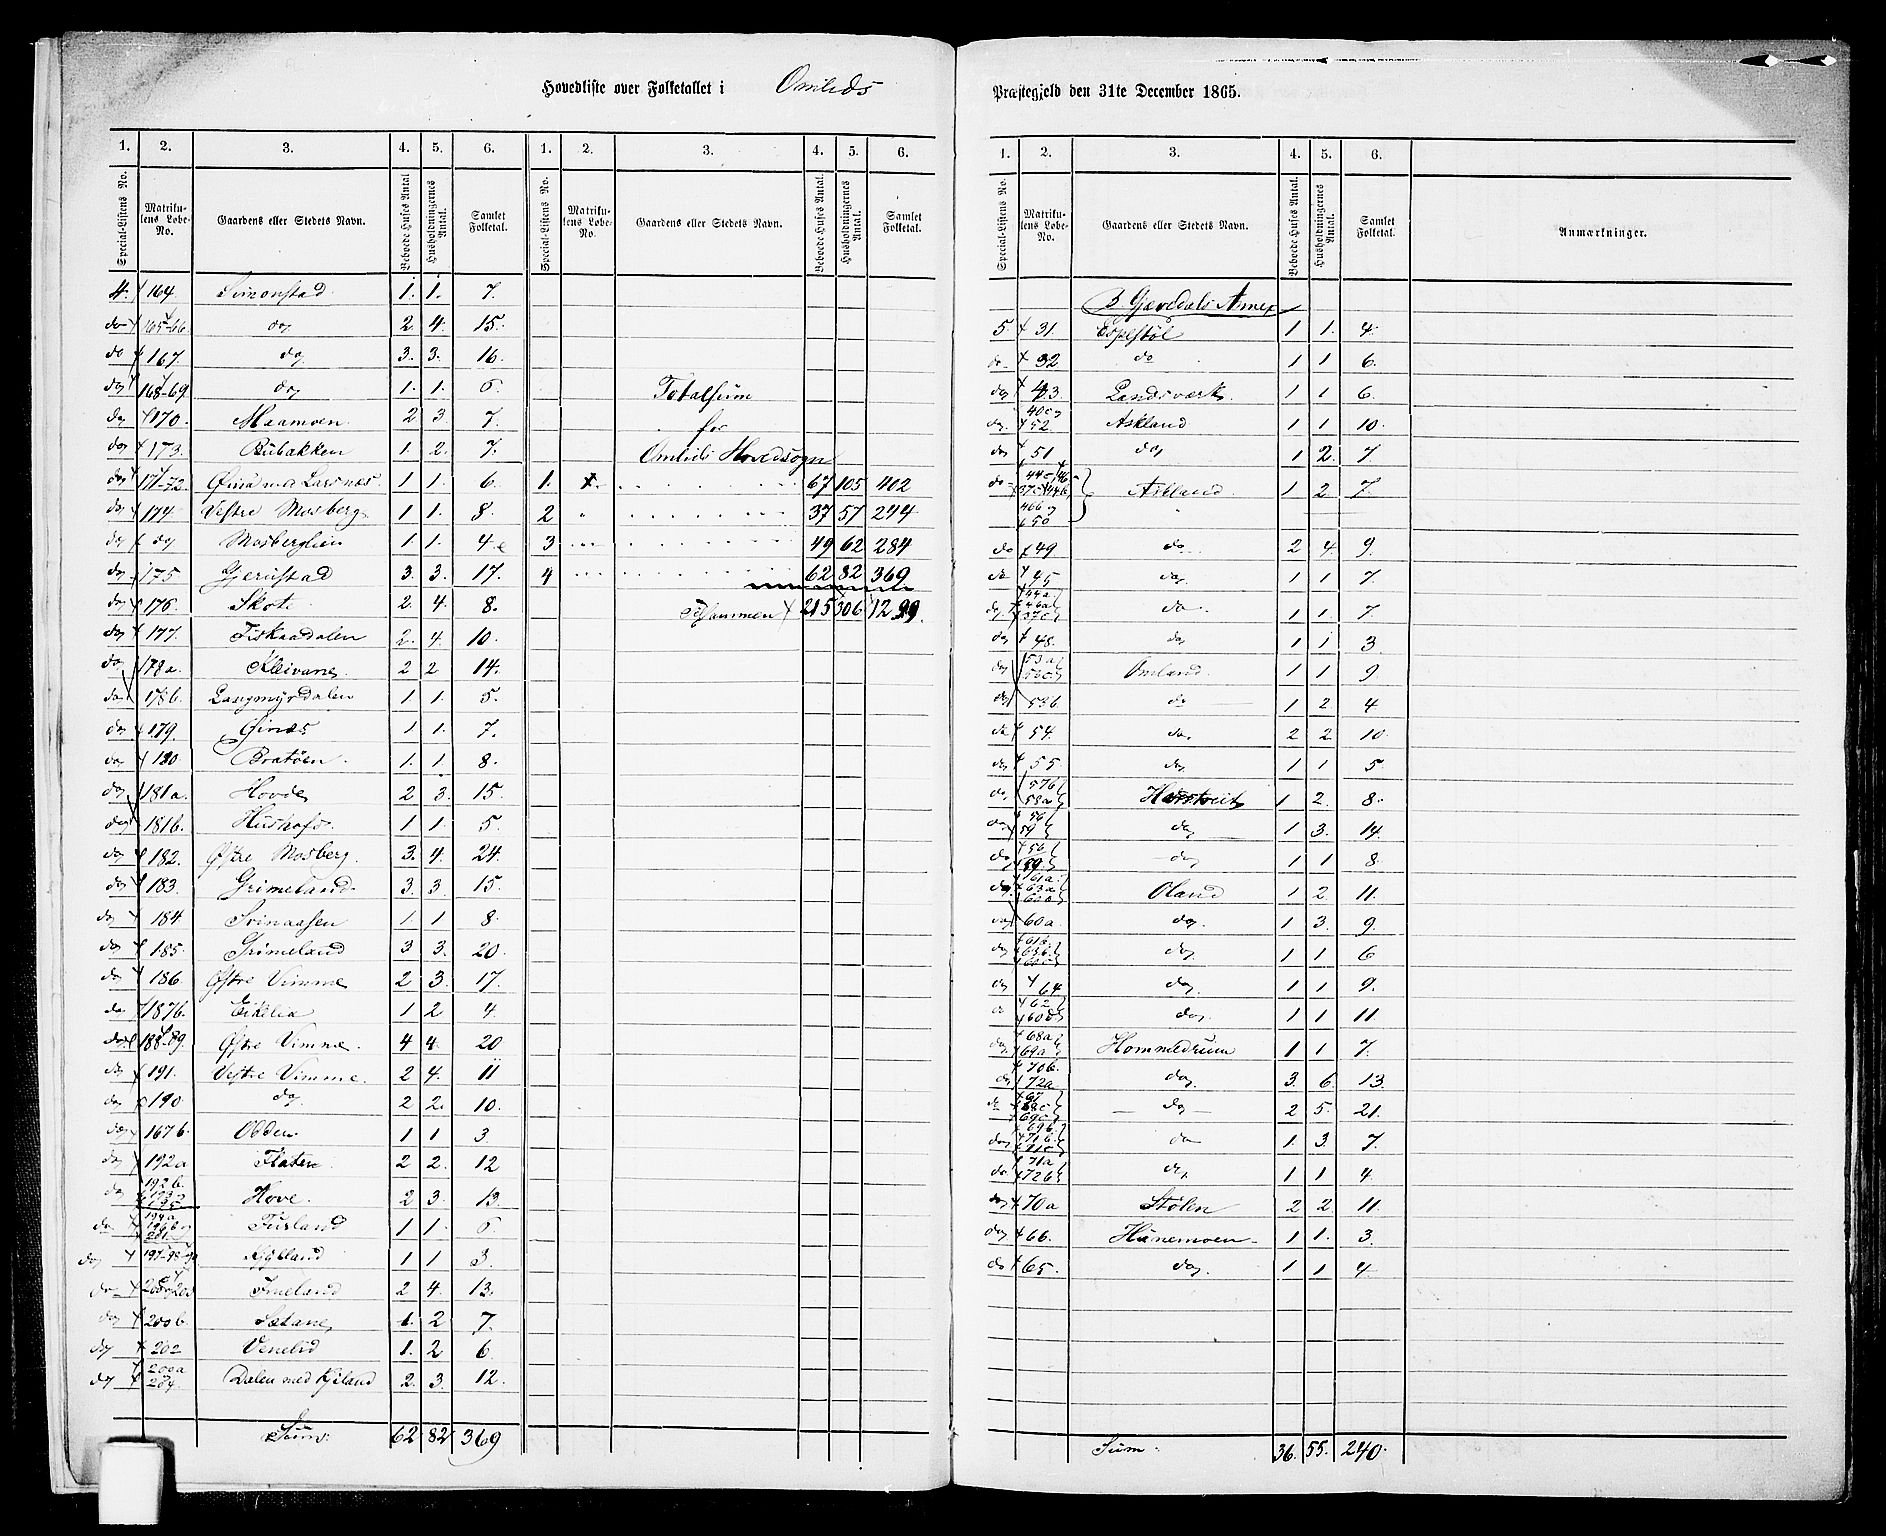 Hovedliste over Folketallet i Omlids
1. 2. 3. 4. 5. 6. 1. 2. 3. 4. 5. 6.
Special-Listens No. Matrikulens Løbe-No. Gaardens eller Stedets Navn. Beboede Huses Antal. Husholdningernes Antal. Samlet Folketal. Special-Listens No. Matrikulens Løbe-No. Gaardens eller Stedets Navn. Beboede Huses Antal. Husholdningernes Antal. Samlet Folketal.
4. 164 Simonstad 1. 1. 7.
do 165-66 do 2. 4. 15.
do 167. do 3. 3. 16.
do 168-69. do 1. 1. 6.
do 170. Maamoen 2 3 7.
do 173. Bubakken 1. 2. 7.
do 171-72. 1 1. 6.
do 174. Vestre Mosberg 1 1. 8.
do do Mosberglien 1 1. 4
do 175 Gjerustad 3. 3. 17.
do 176. Skote 2. 4. 8.
do 177. Fiskaadalen 2. 4. 10.
do 178a. Kleivane 2 2 14.
do 178b. Langmyrdalen 1 1. 5.
do 179. Øines 1 1. 7.
do 180 Bratøen 1. 1 8.
do 181a. Hovde 2 3. 15.
do 181b. Hushofs 1 1. 5.
do 182. Østre Mosberg. 3. 4. 24.
do 183. Grimeland 3. 3. 15.
do 184. Svinaasen 1. 1 8.
do 185. Grimeland 3. 3. 20.
do 186. Østre Vimme 2 3. 17.
do 187b. Eikelia 1 2 4.
do 188-89. Østre Vimme. 4 4. 20
do 191. Vestre Vimme. 2 4. 11
do 190 do 2 2. 10.
do 167b. Odden 1 1 3.
do 192a Flaten 2 2. 12
do 192b. Hove. 2 3. 13.
do 194a Fusland 1 1. 6
do 197-98-99 1 1 3
do Fineland 2 4. 13.
do 200b Sætane 1. 2 7.
do 202 Venelid 1. 2 6.
do 200a 204. Dalen med Kjiland 2. 3. 12.
Sum: 62. 82 369
Totalsum
for
Omlids Hovedsogn
1. 67 105 402
2 37 57 244
3 49 62 284
4 62 82 369
Tilsammen 215 306 1299.
Præstegjeld den 31te December 1865.
1. 2. 3. 4. 5. 6.
Special-Listens No. Matrikulens Løbe-No. Gaardens eller Stedets Navn. Beboede Huses Antal. Husholdningernes Antal. Samlet Folketal. Anmærkninger.
B. Gjævedals Annex
5. 31. Espestøl 1 1. 4.
do 32 do 1 1 6.
do 43 Landsværk 1 1 6.
do 40c 52. Askland 1 1 10.
do 51 do 1 2. 7
do 44c 46 37c 44b 46b 50 Askland 1 2 7.
do 49 do 2 4. 9.
do 45 do 1 1 7.
do 44a 46a 37c do 1 1 7.
do 48. do 1 1 3
do 53a 56c Omland 1 1 9
do 53b do 1 2 4
do 54 do 2 2 10
do 55 do 1 1 5
do 57b 58a 1 2. 8.
do 56 59 do 1 3. 14.
do 56 59 do 1 1 8
do 61a. 63a 60b Oland 1 2 11.
do 60a. do 1 3. 9.
do 61b. 63b. do 1 1 6
do 64 do 1 1 9.
62 60d do. 1 1 11.
do 68a 69a Hommedrum 1 1 7.
do 70b. 72a do. 3. 6. 13.
do 67 68c 69c do 2 5. 21.
do 69b 71b. 71c do 1 3. 7
do 71a 72b do 1 1 4
do 70a Stolen 2 2 11
do 66. Hunemoen 1 1. 3.
do 65. do. 1 1 4.
Sum 36. 55. 240.